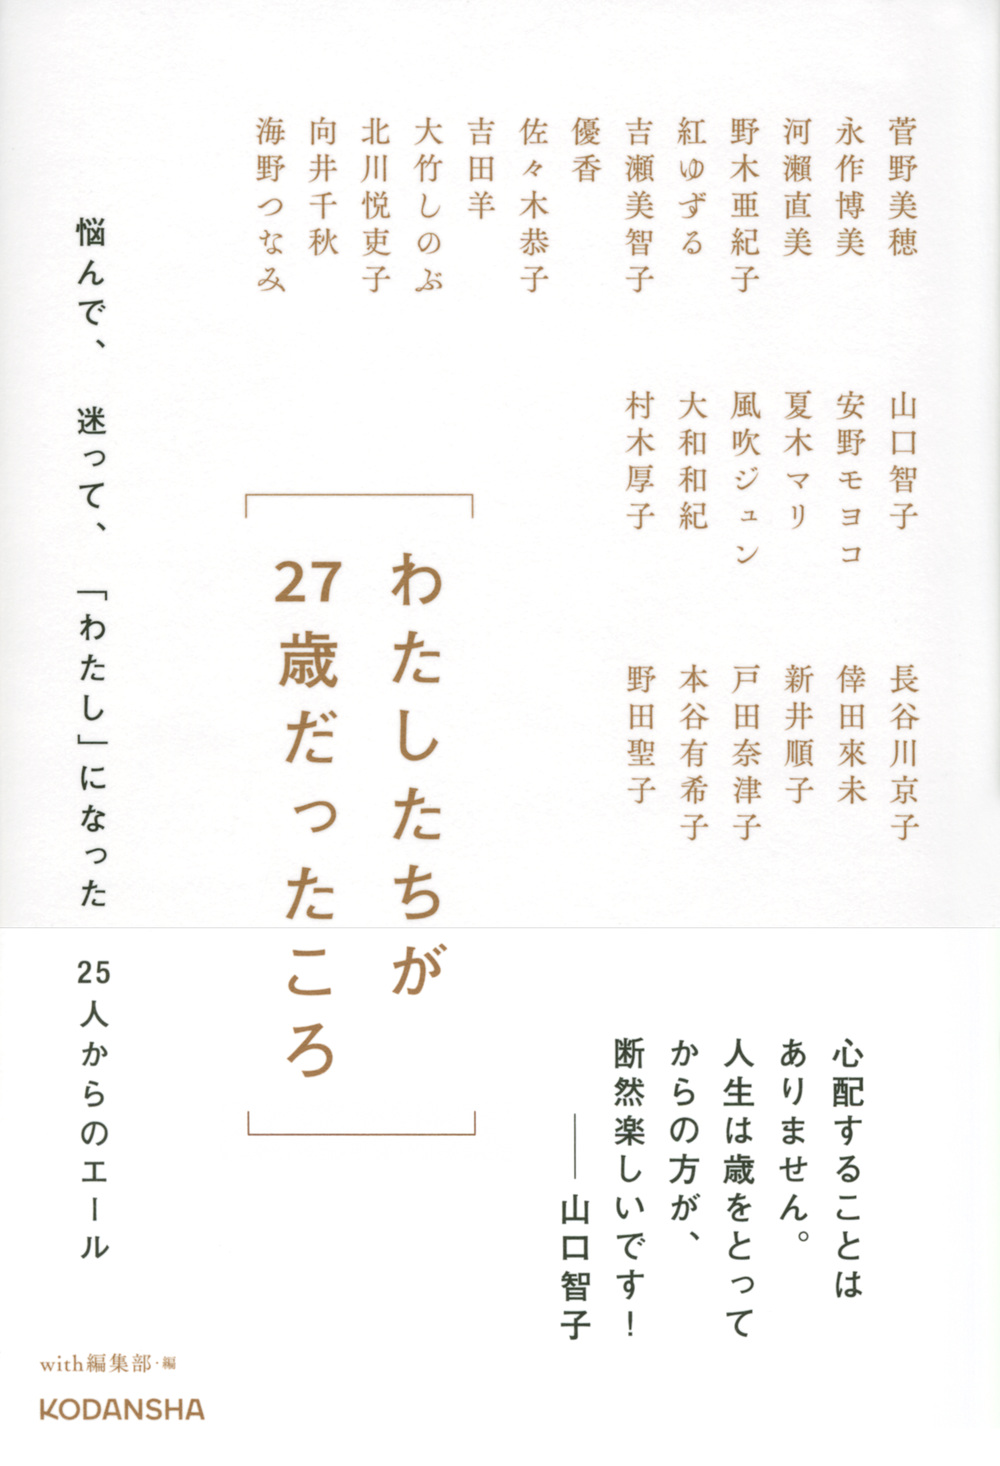 菅野美穂
永作博美
河瀨直美
野木亜紀子
紅ゆずる
吉瀬美智子
優香
佐々木恭子
吉田羊
大竹しのぶ
北川悦吏子
向井千秋
海野つなみ
山口智子
安野モヨコ
夏木マリ
風吹ジュン
大和和紀
村木厚子
長谷川京子
倖田來未
新井順子
戸田奈津子
本谷有希子
野田聖子
わたしたちが
27歳だったころ
悩んで、迷って、「わたし」になった 25人からのエール
心配することは
ありません。
人生は歳をとって
からの方が、
断然楽しいです!
——山口智子
with編集部・編
KODANSHA